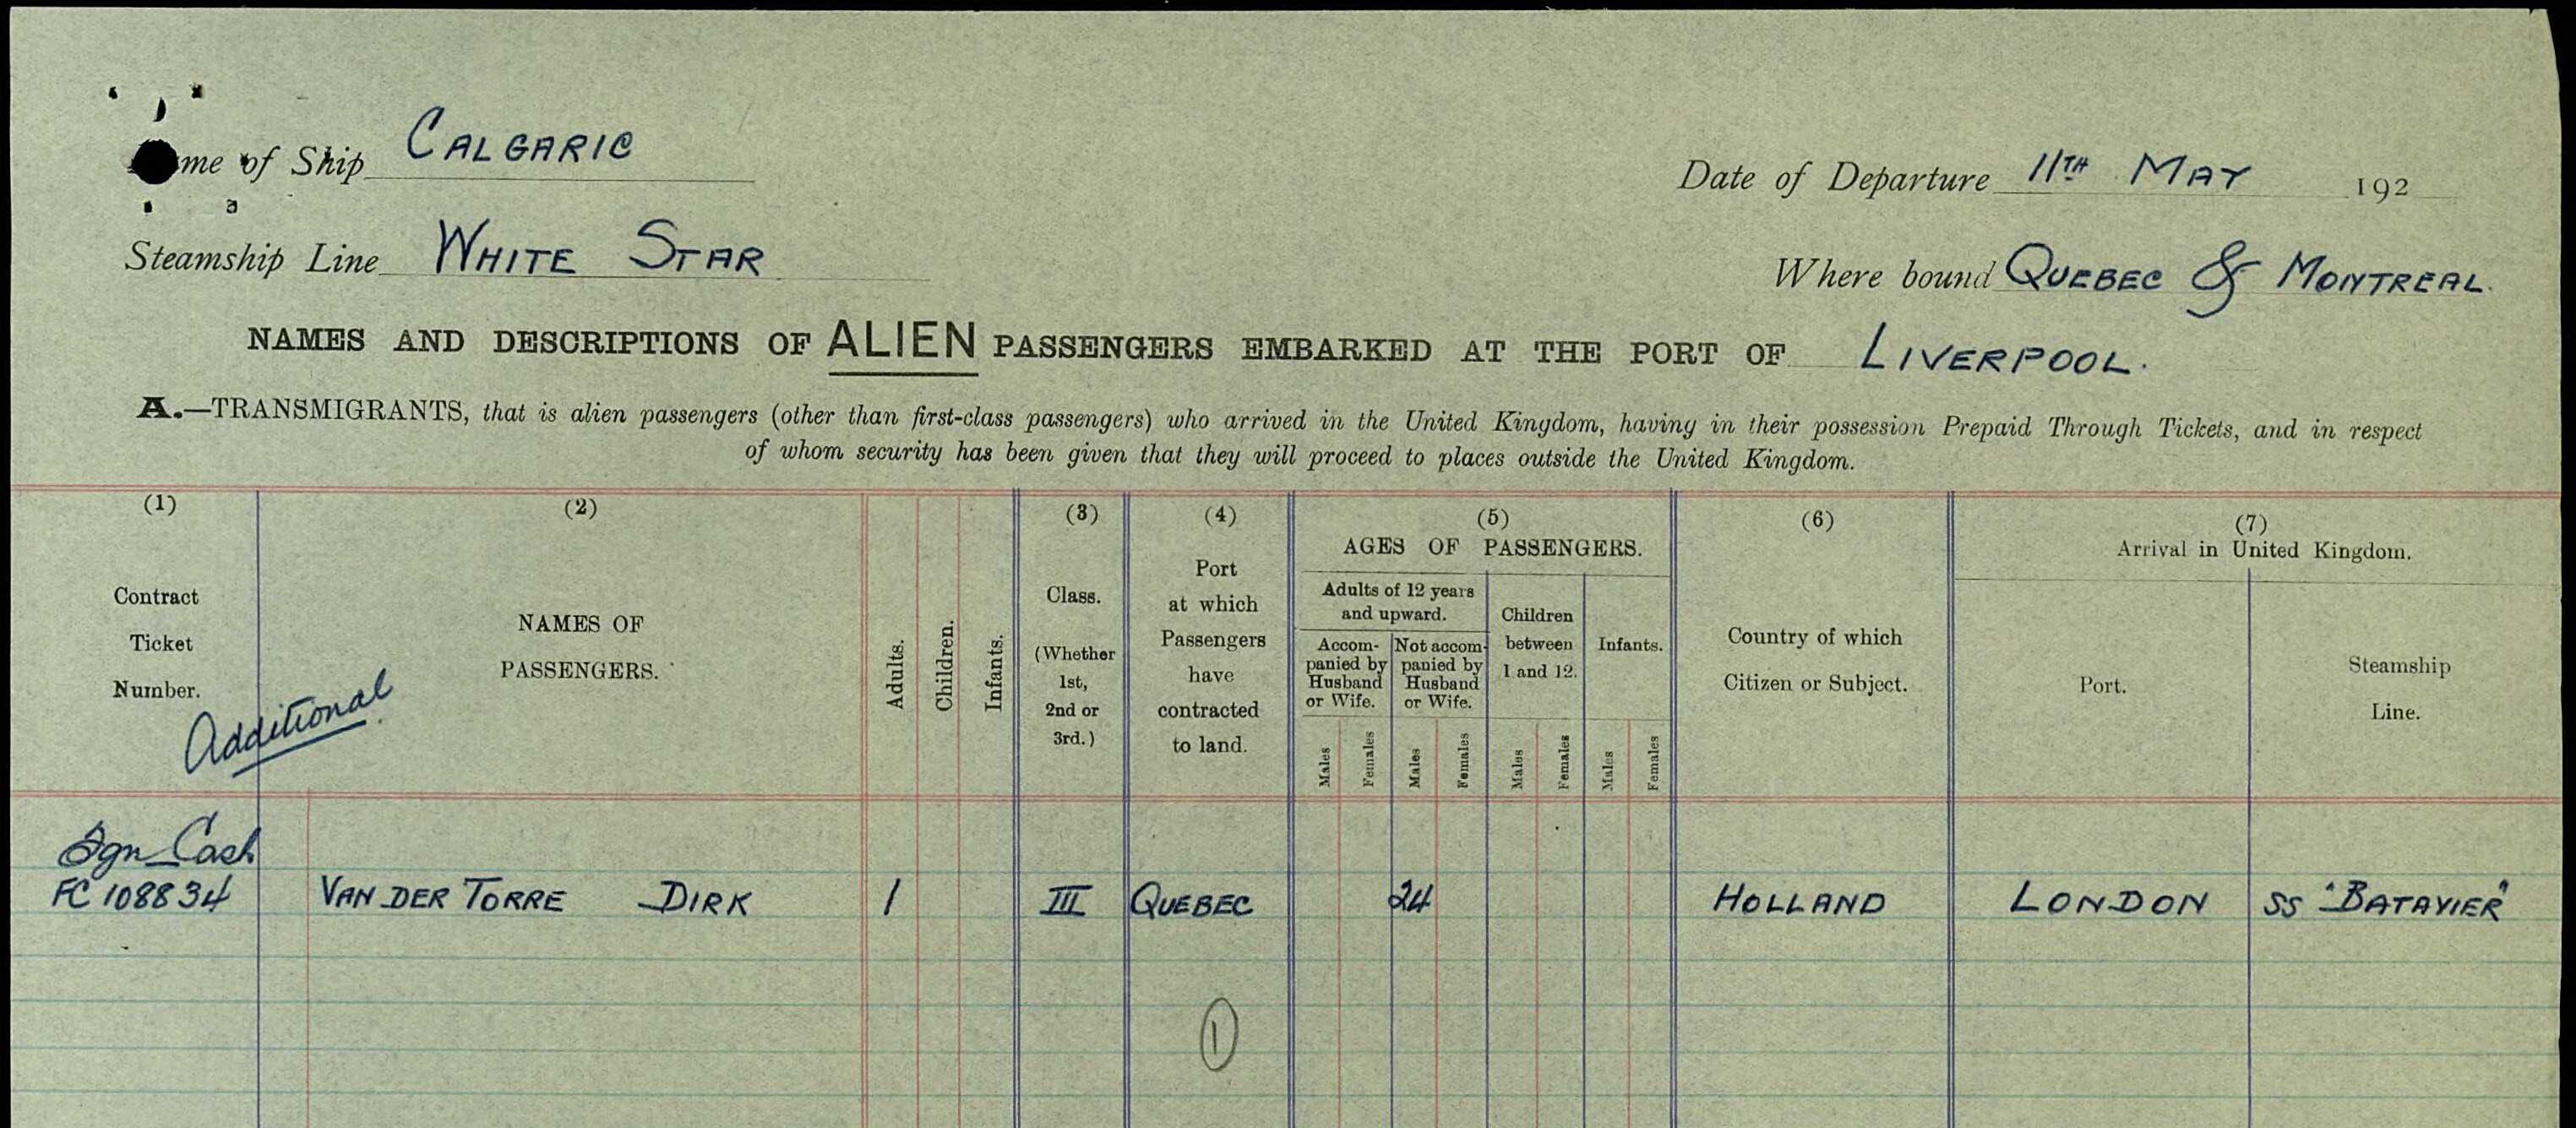 me of Ship CALGARIC
Date of Departure 11TH MAY 192
Steamship Line WHITE STAR
Where bound QUEBEC & MONTREAL.
NAMES AND DESCRIPTIONS OF ALIEN PASSENGERS EMBARKED AT THE PORT OF LIVERPOOL.
A.—TRANSMIGRANTS, that is alien passengers (other than first-class passengers) who arrived in the United Kingdom, having in their possession Prepaid Through Tickets, and in respect
of whom security has been given that they will proceed to places outside the United Kingdom.
(1)
Contract
Ticket
Number.
Additional
(2)
NAMES OF
PASSENGERS.
Adults.
Children.
Infants.
(3)
Class.
(Whether
1st,
2nd or
3rd.)
(4)
Port
at which
Passengers
have
contracted
to land.
(5)
AGES OF PASSENGERS.
Adults of 12 years
and upward.
Accom-
panied by
Husband
or Wife.
Not accom-
panied by
Husband
or Wife.
Children
between
1 and 12.
Infants.
Males
Females
Males
Females
Males
Females
Males
Females
(6)
Country of which
Citizen or Subject.
(7)
Arrival in United Kingdom.
Port.
Steamship
Line.
Fgn Cash
FC 108834 VAN DER TORRE DIRK 1 III QUEBEC 24 HOLLAND LONDON SS "BATAVIER"
1